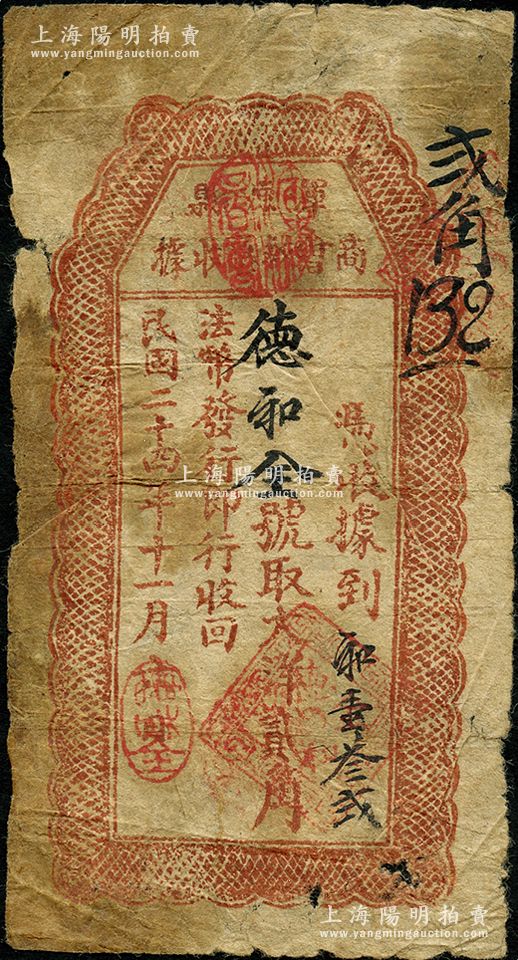 上海陽明拍賣
www.yangmingauction.com
縣
商會
收據
憑
據到
德和全號取大洋貳角
法幣發行即行收回
民國二十四年十一月
弍角
132
和壹叁弍
上海陽明拍賣
www.yangmingauction.com
上海陽明拍賣
www.yangmingauction.com